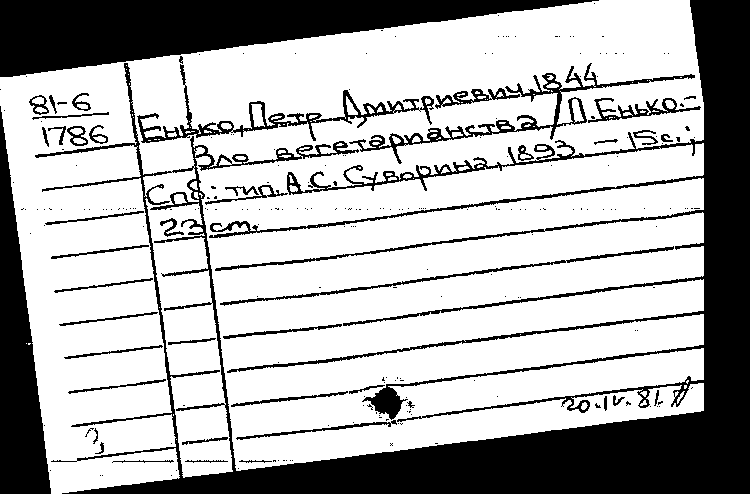 81-6
1786
Енько, Петр Дмитриевич, 1844
Зло вегетарианства / П. Енько.-
Спб.: тип. А.С. Суворина, 1893. - 15 с.;
23 см.
20.IV.81.